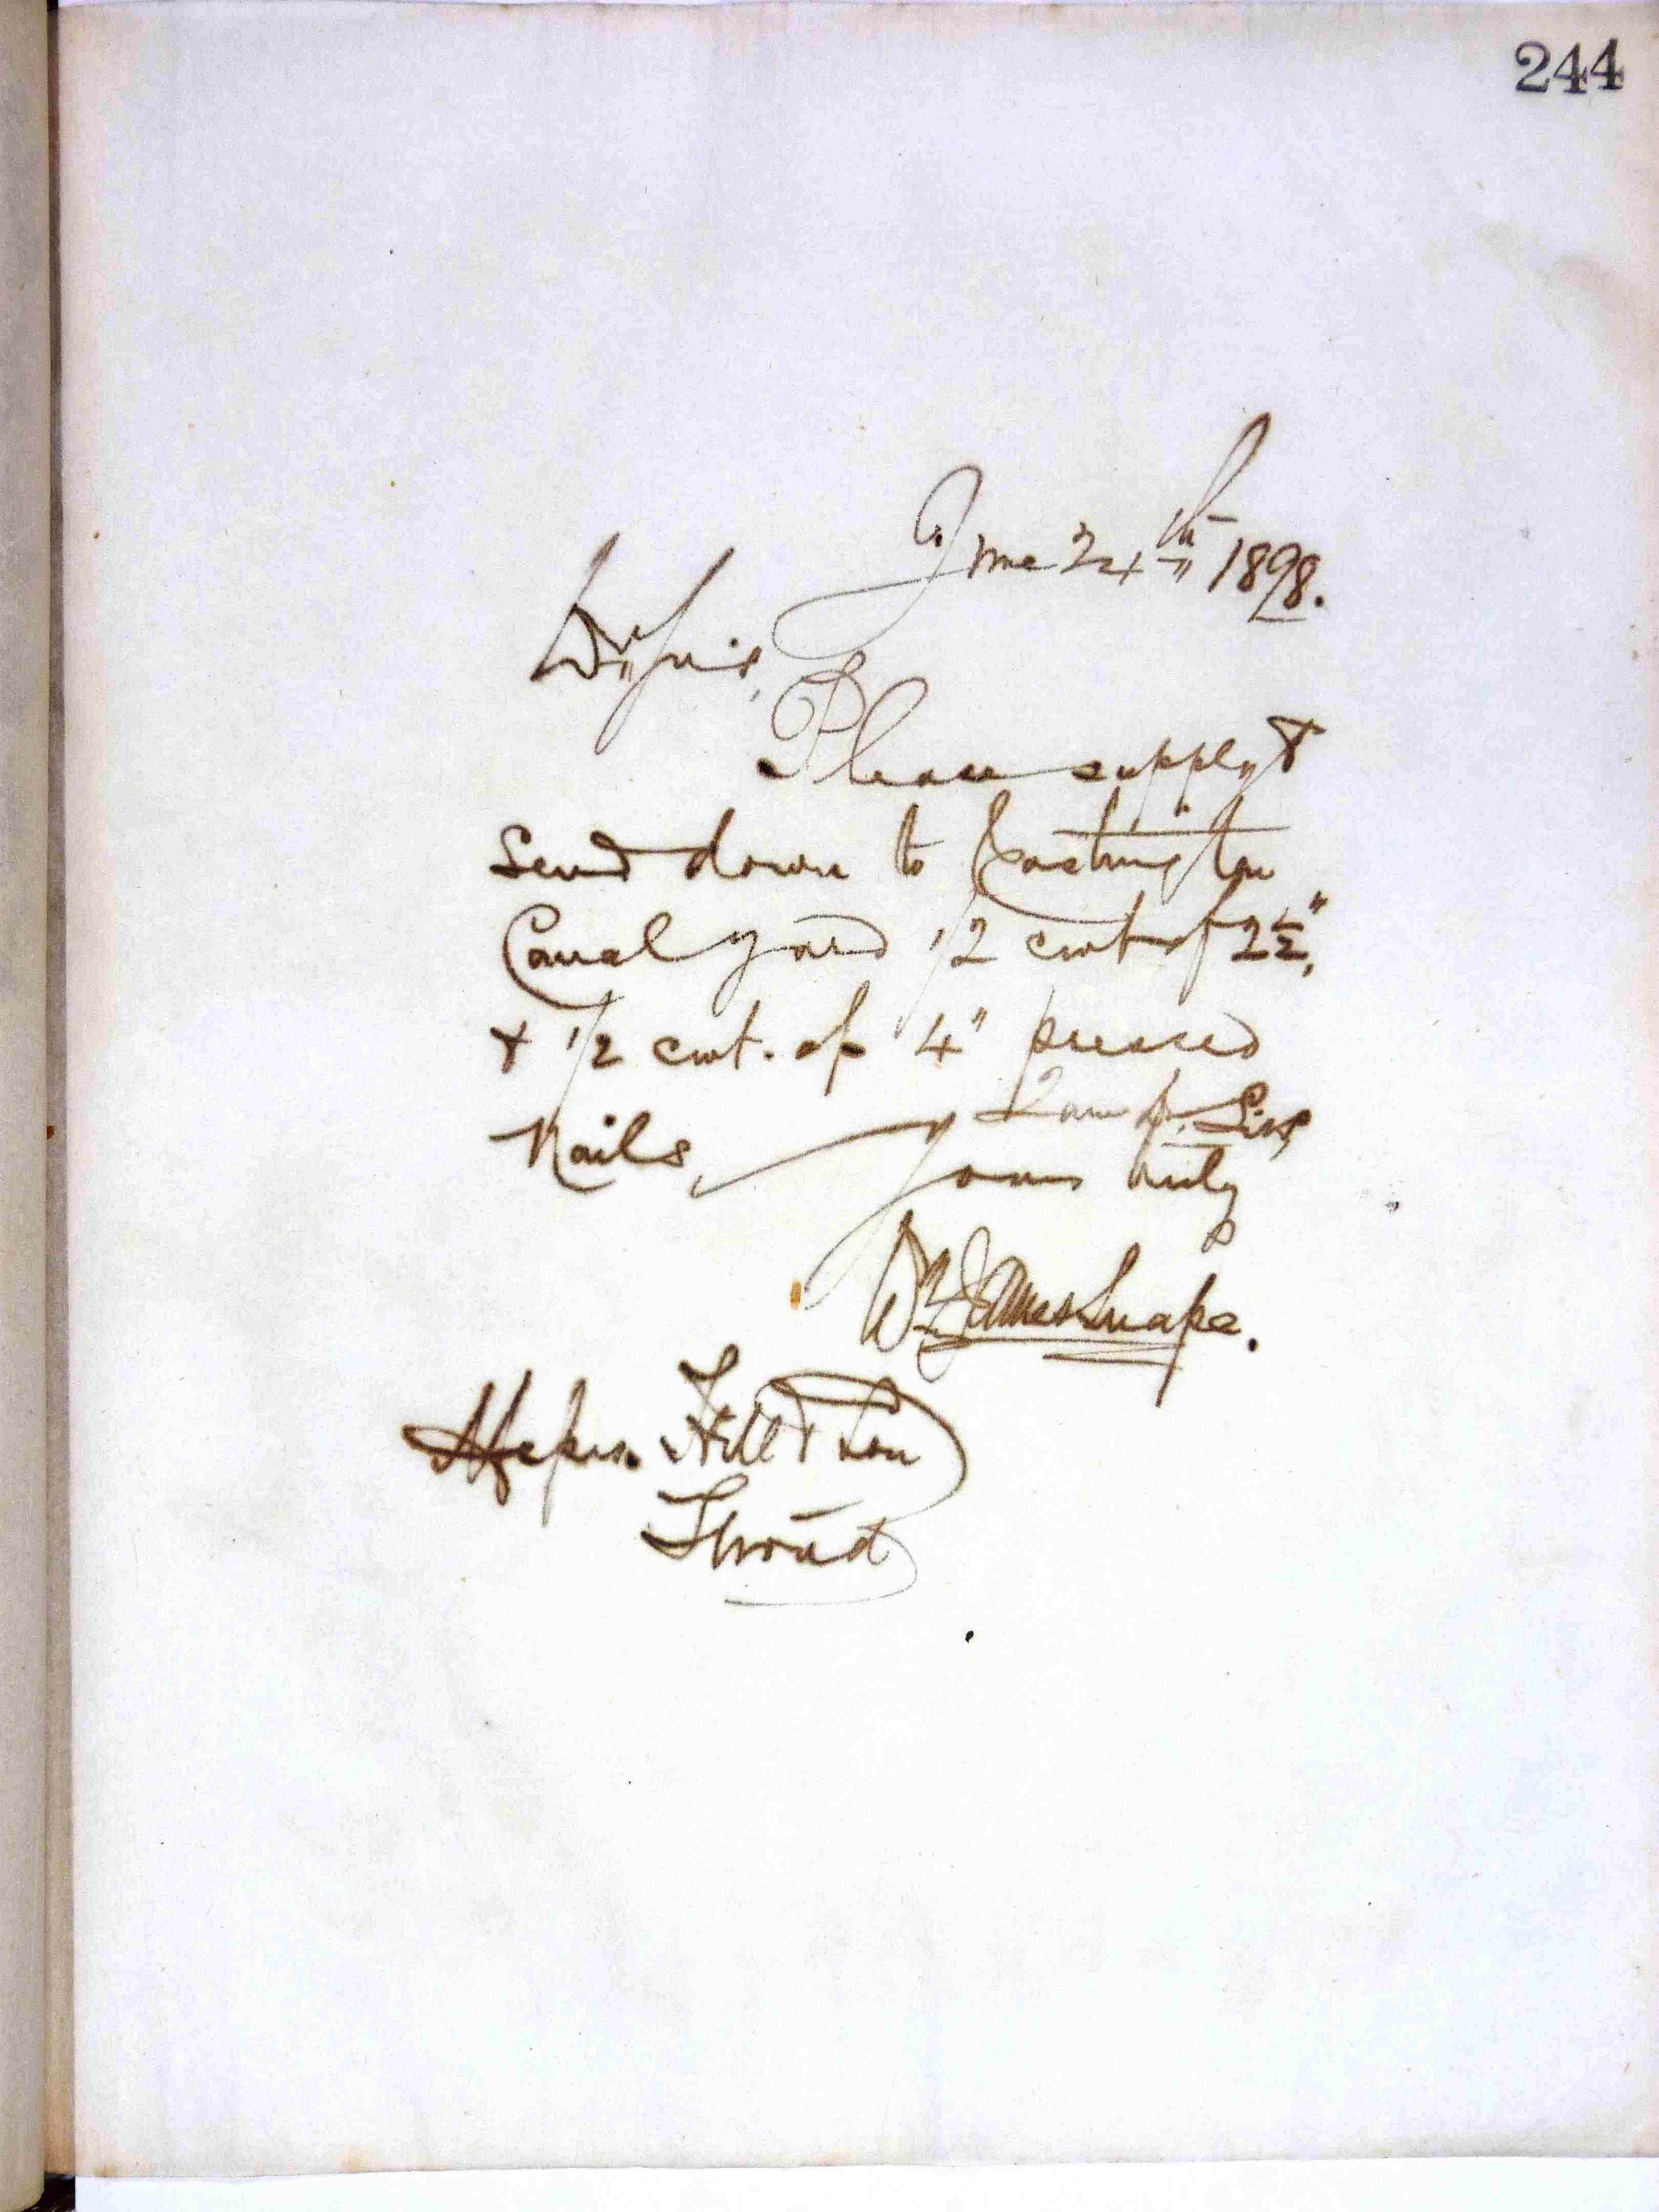 244
June 24th 1898.
Dr Sir,
Please supply &
send down to Eastington
Canal Yard 1/2 cwt of 2 1/2",
& 1/2 cwt. of 4" pressed
Nails, I am dr. Sirs,
Yours truly
Wm James Snape.
Messrs. Hill & Son
Stroud